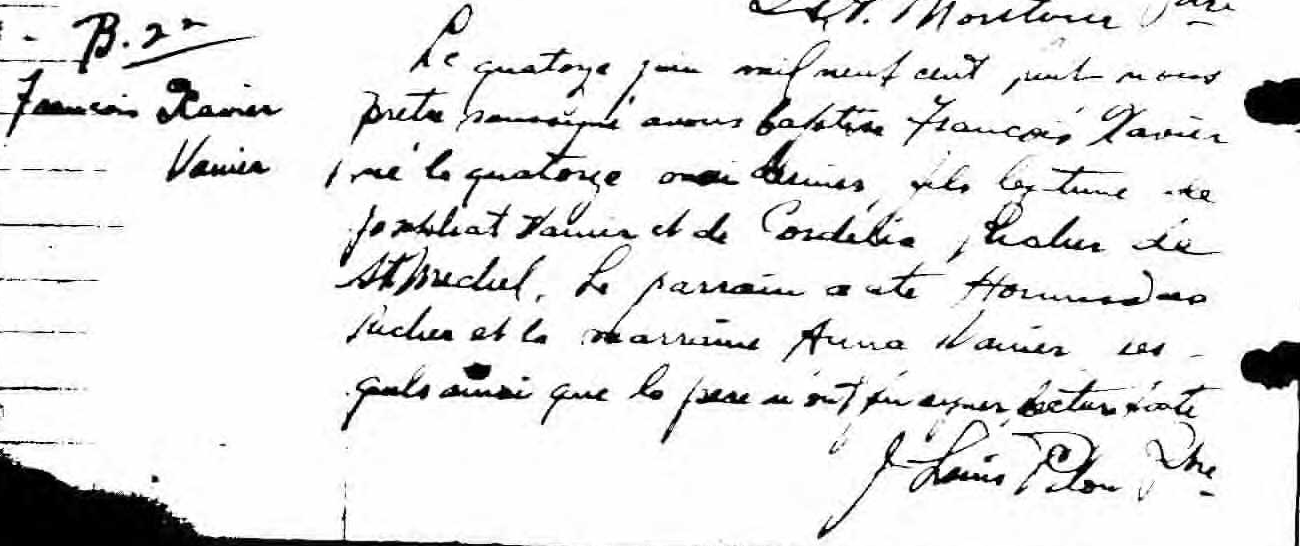 B. 22
François Xavier
Vanier
Ptre
Le quatorze juin mil neuf cent sept nous
pretre soussigné avons baptise François Xavier
né le quatorze mai dernier, fils legitime de
Josaphat Vanier et de Cordélia Pucher de
St Michel. Le parrain a ete Hormisdas
Pucher et la marraine Anna Vanier les-
quels ainsi que le pere n'ont pu signer, lecture faite
J. Louis Pilon Ptre